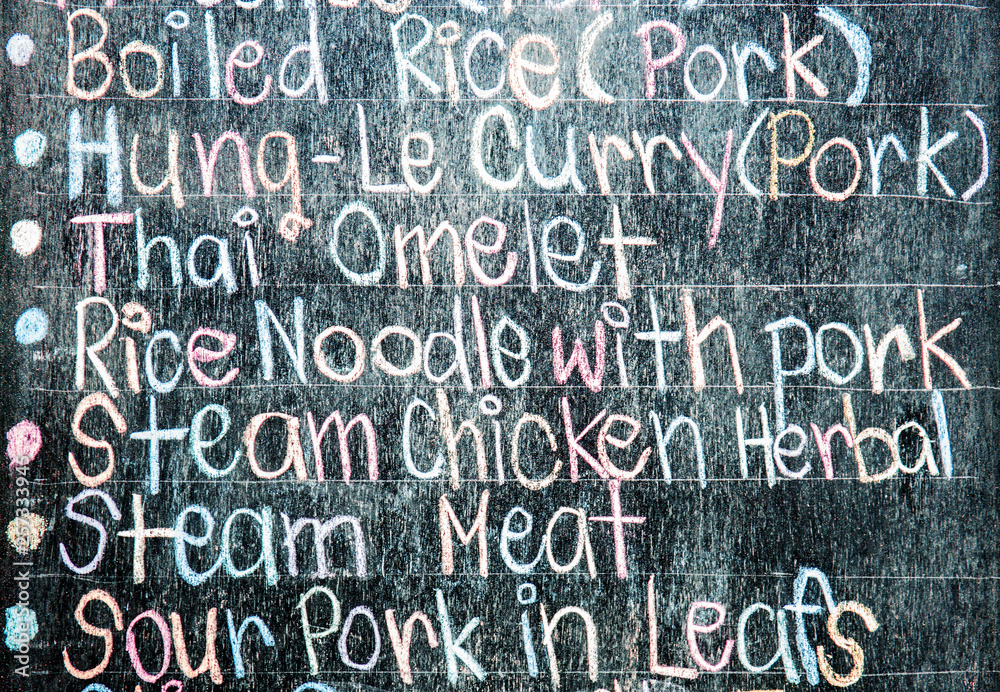 Boiled Rice (Pork)
Hung-Le Curry (Pork)
Thai Omelet
Rice Noodle with pork
Steam Chicken Herbal
Steam Meat
Sour Pork in Leafs
Adobe Stock